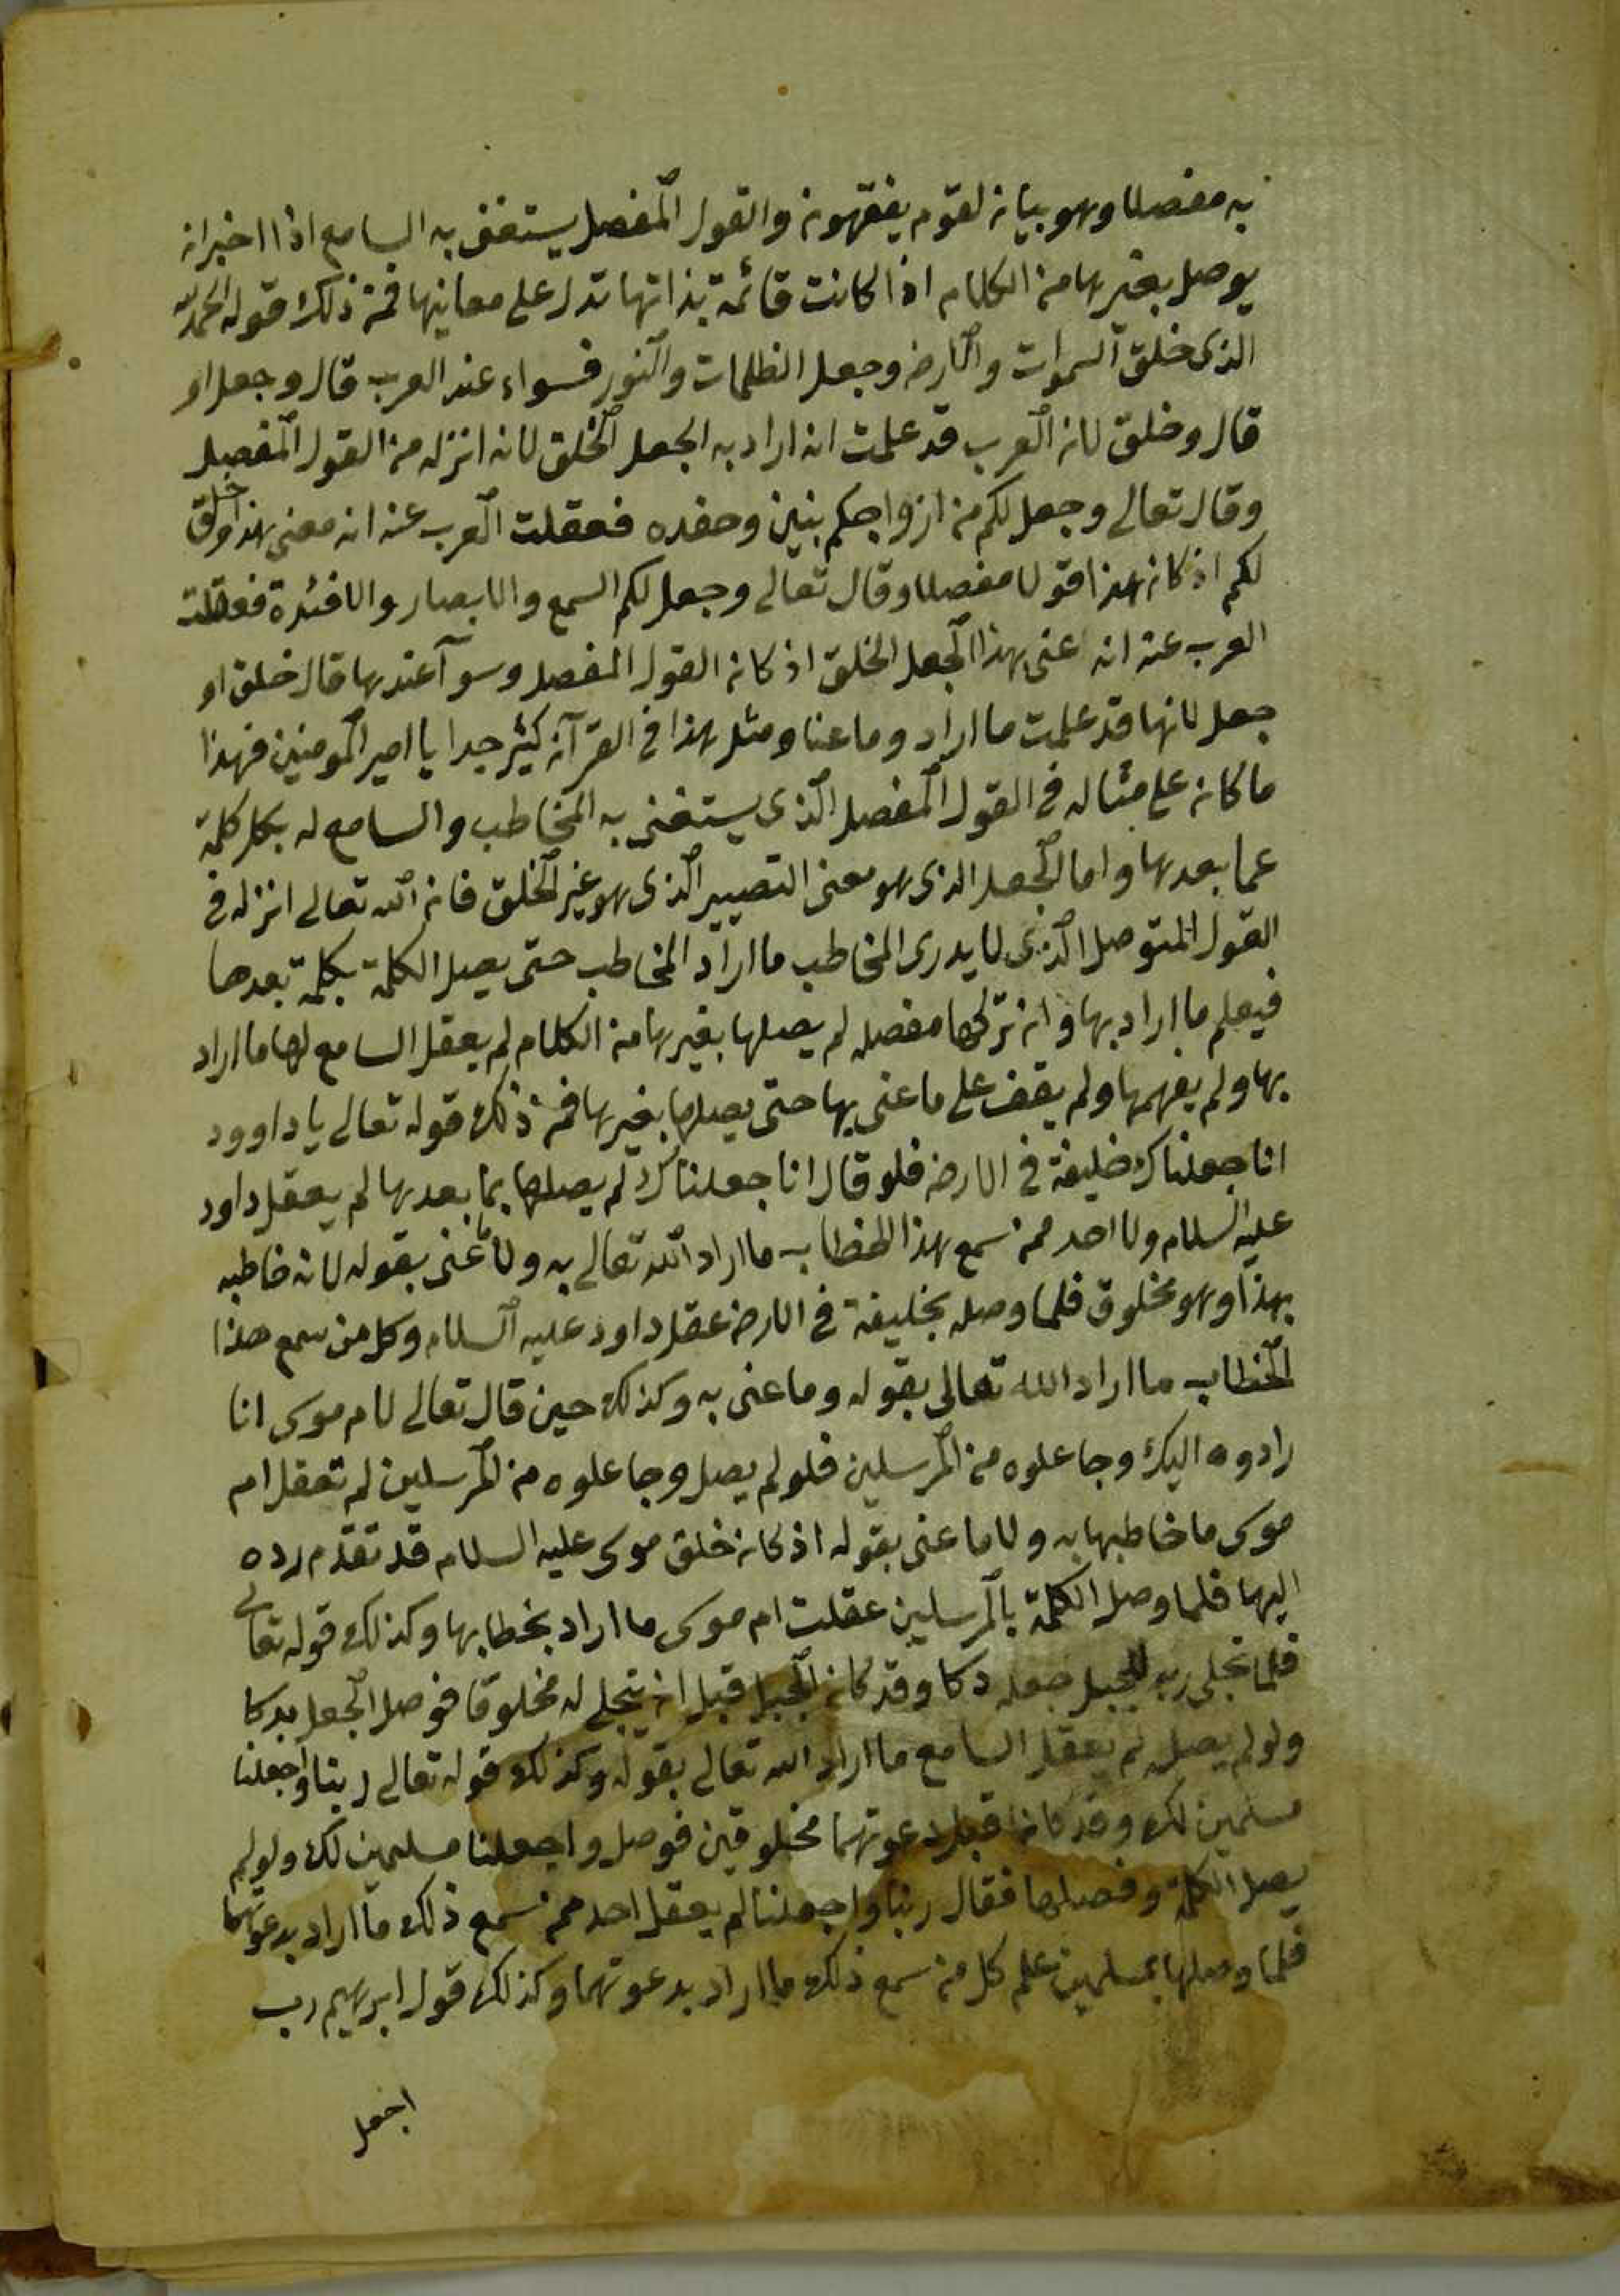 به مفصلا وهو بيانه لقوم يفقهون والقول المفصل يستغنى به السامع اذا اخبر ان
يوصل بغيرها من الكلام اذا كانت قائمة بذاتها تدل على معانيها فمن ذلك قوله الحمد لله
الذى خلق السموات والارض وجعل الظلمات والنور فسواء عند العرب قال وجعل او
قال وخلق لان العرب قد علمت انه اراد به الجعل الخلق لانه انزله من القول المفصل
وقال تعالى وجعل لكم من ازواجكم بنين وحفده فعقلت العرب عنه انه معنى هذا وخلق
لكم اذ كان هذا قولا مفصلا وقال تعالى وجعل لكم السمع والابصار والافئدة فعقلت
العرب عنه انه عنى بهذا الجعل الخلق اذ كان القول المفصل وسوآ عندها قال خلق او
جعل لانها قد علمت ما اراد وما عنا ومثل هذا فى القرآن كثير جدا يا امير المومنين فهذا
ما كان على مثاله فى القول المفصل الذى يستغنى به المخاطب والسامع له بكل كلمة
عما بعدها واما الجعل الذى هو معنى التصيير الذى هو غير الخلق فان الله تعالى انزله فى
القول المتوصل الذى لا يدرى المخاطب ما اراد المخاطب حتى يصل الكلمة بكلمة بعدها
فيعلم ما اراد بها وان تركها مفصله لم يصلها بغيرها من الكلام لم يعقل السامع لها ما اراد
بها ولم يفهمها ولم يقف على ما عنى بها حتى يصلها بغيرها فمن ذلك قوله تعالى يا داوود
انا جعلناك خليفة فى الارض فلو قال انا جعلناك لم يصلها بما بعدها لم يعقل داود
عليه السلام ولا احد ممن سمع بهذا الخطاب ما اراد الله تعالى به ولا ما عنى بقوله لانه خاطبه
بهذا وهو مخلوق فلما وصله بخليفة فى الارض عقل داود عليه السلام وكل من سمع هذا
الخطاب ما اراد الله تعالى بقوله وما عنى به وكذلك حين قال تعالى لام موسى انا
رادوه اليك وجاعلوه من المرسلين فلو لم يصل وجاعلوه من المرسلين لم تعقل ام
موسى ما خاطبها به ولا ما عنى بقوله اذ كان خلق موسى عليه السلام قد تقدم رده
اليها فلما وصل الكلمة بالمرسلين عقلت ام موسى ما اراد بخطابها وكذلك قوله تعالى
فلما تجلى ربه للجبل جعله دكا وقد كان الجبل قبل ان يتجلى له مخلوقا فوصل الجعل بدكا
ولو لم يصل لم يعقل السامع ما اراد الله تعالى بقوله وكذلك قوله تعالى ربنا واجعلنا
مسلمين لك وقد كانا قبل دعوتهما مخلوقين فوصل واجعلنا مسلمين لك ولو لم
يصل الكلمة وفصلها فقال ربنا واجعلنا لم يعقل احد ممن سمع ذلك ما اراد بدعوتهما
فلما وصلها بمسلمين علم كل من سمع ذلك ما اراد بدعوتهما وكذلك قول ابرهيم رب
اجعل